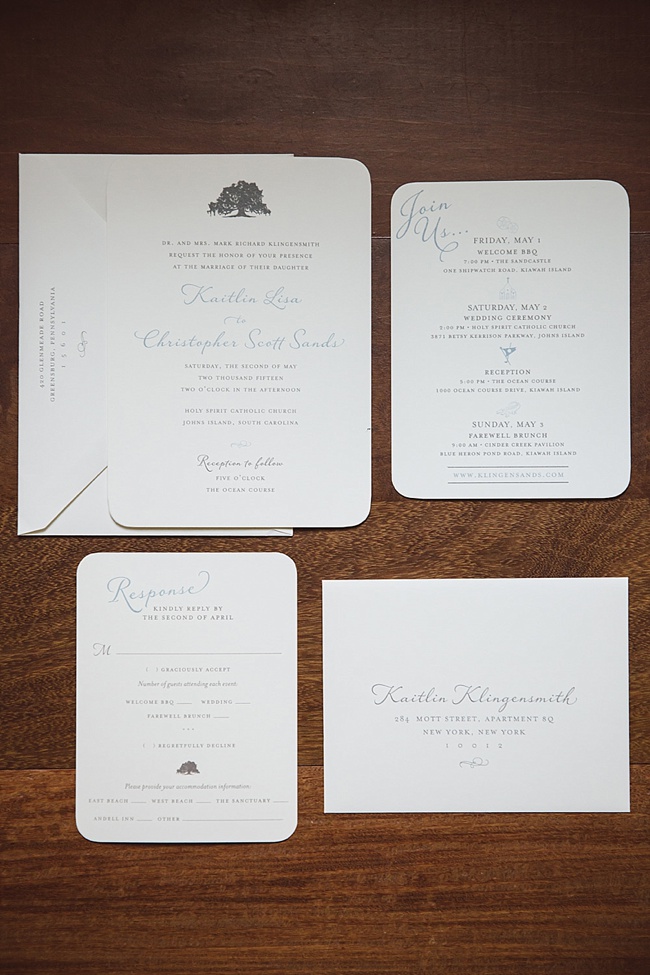 420 GLENMEADE ROAD
GREENSBURG, PENNSYLVANIA
15601
DR. AND MRS. MARK RICHARD KLINGENSMITH
REQUEST THE HONOR OF YOUR PRESENCE
AT THE MARRIAGE OF THEIR DAUGHTER
Kaitlin Lisa
to
Christopher Scott Sands
SATURDAY, THE SECOND OF MAY
TWO THOUSAND FIFTEEN
TWO O'CLOCK IN THE AFTERNOON
HOLY SPIRIT CATHOLIC CHURCH
JOHNS ISLAND, SOUTH CAROLINA
Reception to follow
FIVE O'CLOCK
THE OCEAN COURSE
Join
Us...
FRIDAY, MAY 1
WELCOME BBQ
7:00 PM • THE SANDCASTLE
ONE SHIPWATCH ROAD, KIAWAH ISLAND
SATURDAY, MAY 2
WEDDING CEREMONY
2:00 PM • HOLY SPIRIT CATHOLIC CHURCH
3871 BETSY KERRISON PARKWAY, JOHNS ISLAND
RECEPTION
5:00 PM • THE OCEAN COURSE
1000 OCEAN COURSE DRIVE, KIAWAH ISLAND
SUNDAY, MAY 3
FAREWELL BRUNCH
9:00 AM • CINDER CREEK PAVILION
BLUE HERON POND ROAD, KIAWAH ISLAND
WWW.KLINGENSANDS.COM
Response
KINDLY REPLY BY
THE SECOND OF APRIL
M
( ) GRACIOUSLY ACCEPT
Number of guests attending each event:
WELCOME BBQ ___ WEDDING ___
FAREWELL BRUNCH ___
( ) REGRETFULLY DECLINE
Please provide your accommodation information:
EAST BEACH ___ WEST BEACH ___ THE SANCTUARY ___
ANDELL INN ___ OTHER ___
Kaitlin Klingensmith
284 MOTT STREET, APARTMENT 8Q
NEW YORK, NEW YORK
10012